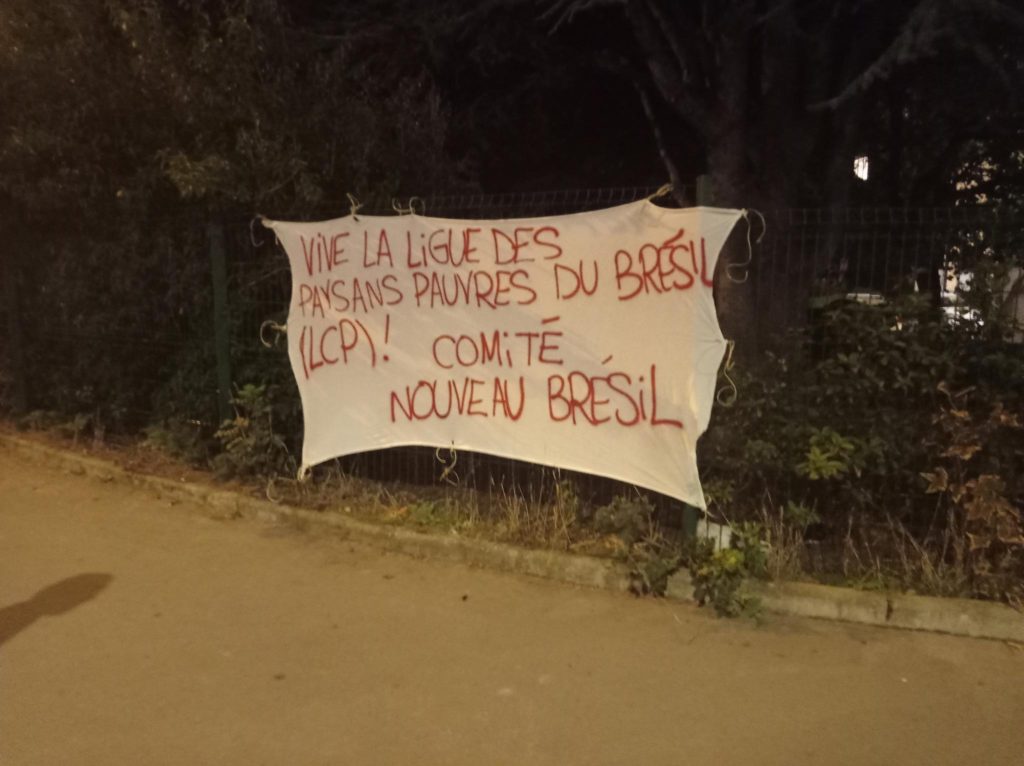 ViVE LA LiGUE DES
PAYSANS PAUVRES DU BRÉSiL
(LCP)! COMiTÉ
NOUVEAU BRÉSiL